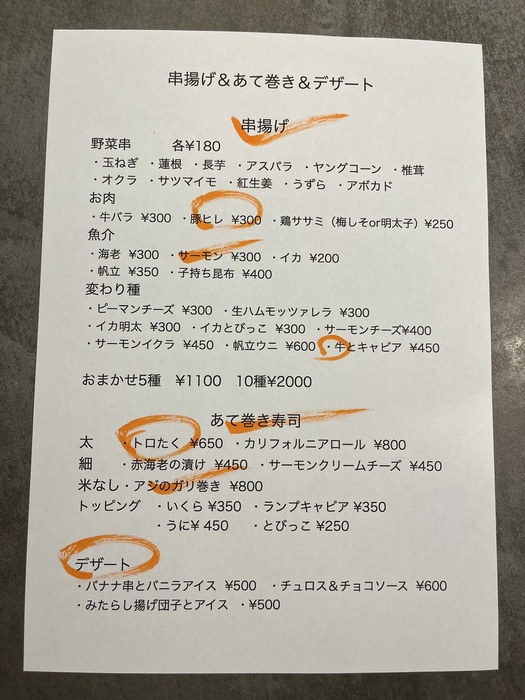 串揚げ＆あて巻き＆デザート
串揚げ
野菜串　各¥180
・玉ねぎ ・蓮根 ・長芋 ・アスパラ ・ヤングコーン ・椎茸
・オクラ ・サツマイモ ・紅生姜 ・うずら ・アボカド
お肉
・牛バラ ¥300 ・豚ヒレ ¥300 ・鶏ササミ（梅しそor明太子）¥250
魚介
・海老 ¥300 ・サーモン ¥300 ・イカ ¥200
・帆立 ¥350 ・子持ち昆布 ¥400
変わり種
・ピーマンチーズ ¥300 ・生ハムモッツァレラ ¥300
・イカ明太 ¥300 ・イカとびっこ ¥300 ・サーモンチーズ¥400
・サーモンイクラ ¥450 ・帆立ウニ ¥600 ・牛とキャビア ¥450
おまかせ5種　¥1100　10種¥2000
あて巻き寿司
太　・トロたく ¥650 ・カリフォルニアロール ¥800
細　・赤海老の漬け ¥450 ・サーモンクリームチーズ ¥450
米なし・アジのガリ巻き ¥800
トッピング　・いくら ¥350 ・ランプキャビア ¥350
・うに¥ 450　・とびっこ ¥250
デザート
・バナナ串とバニラアイス ¥500　・チュロス＆チョコソース ¥600
・みたらし揚げ団子とアイス ・¥500